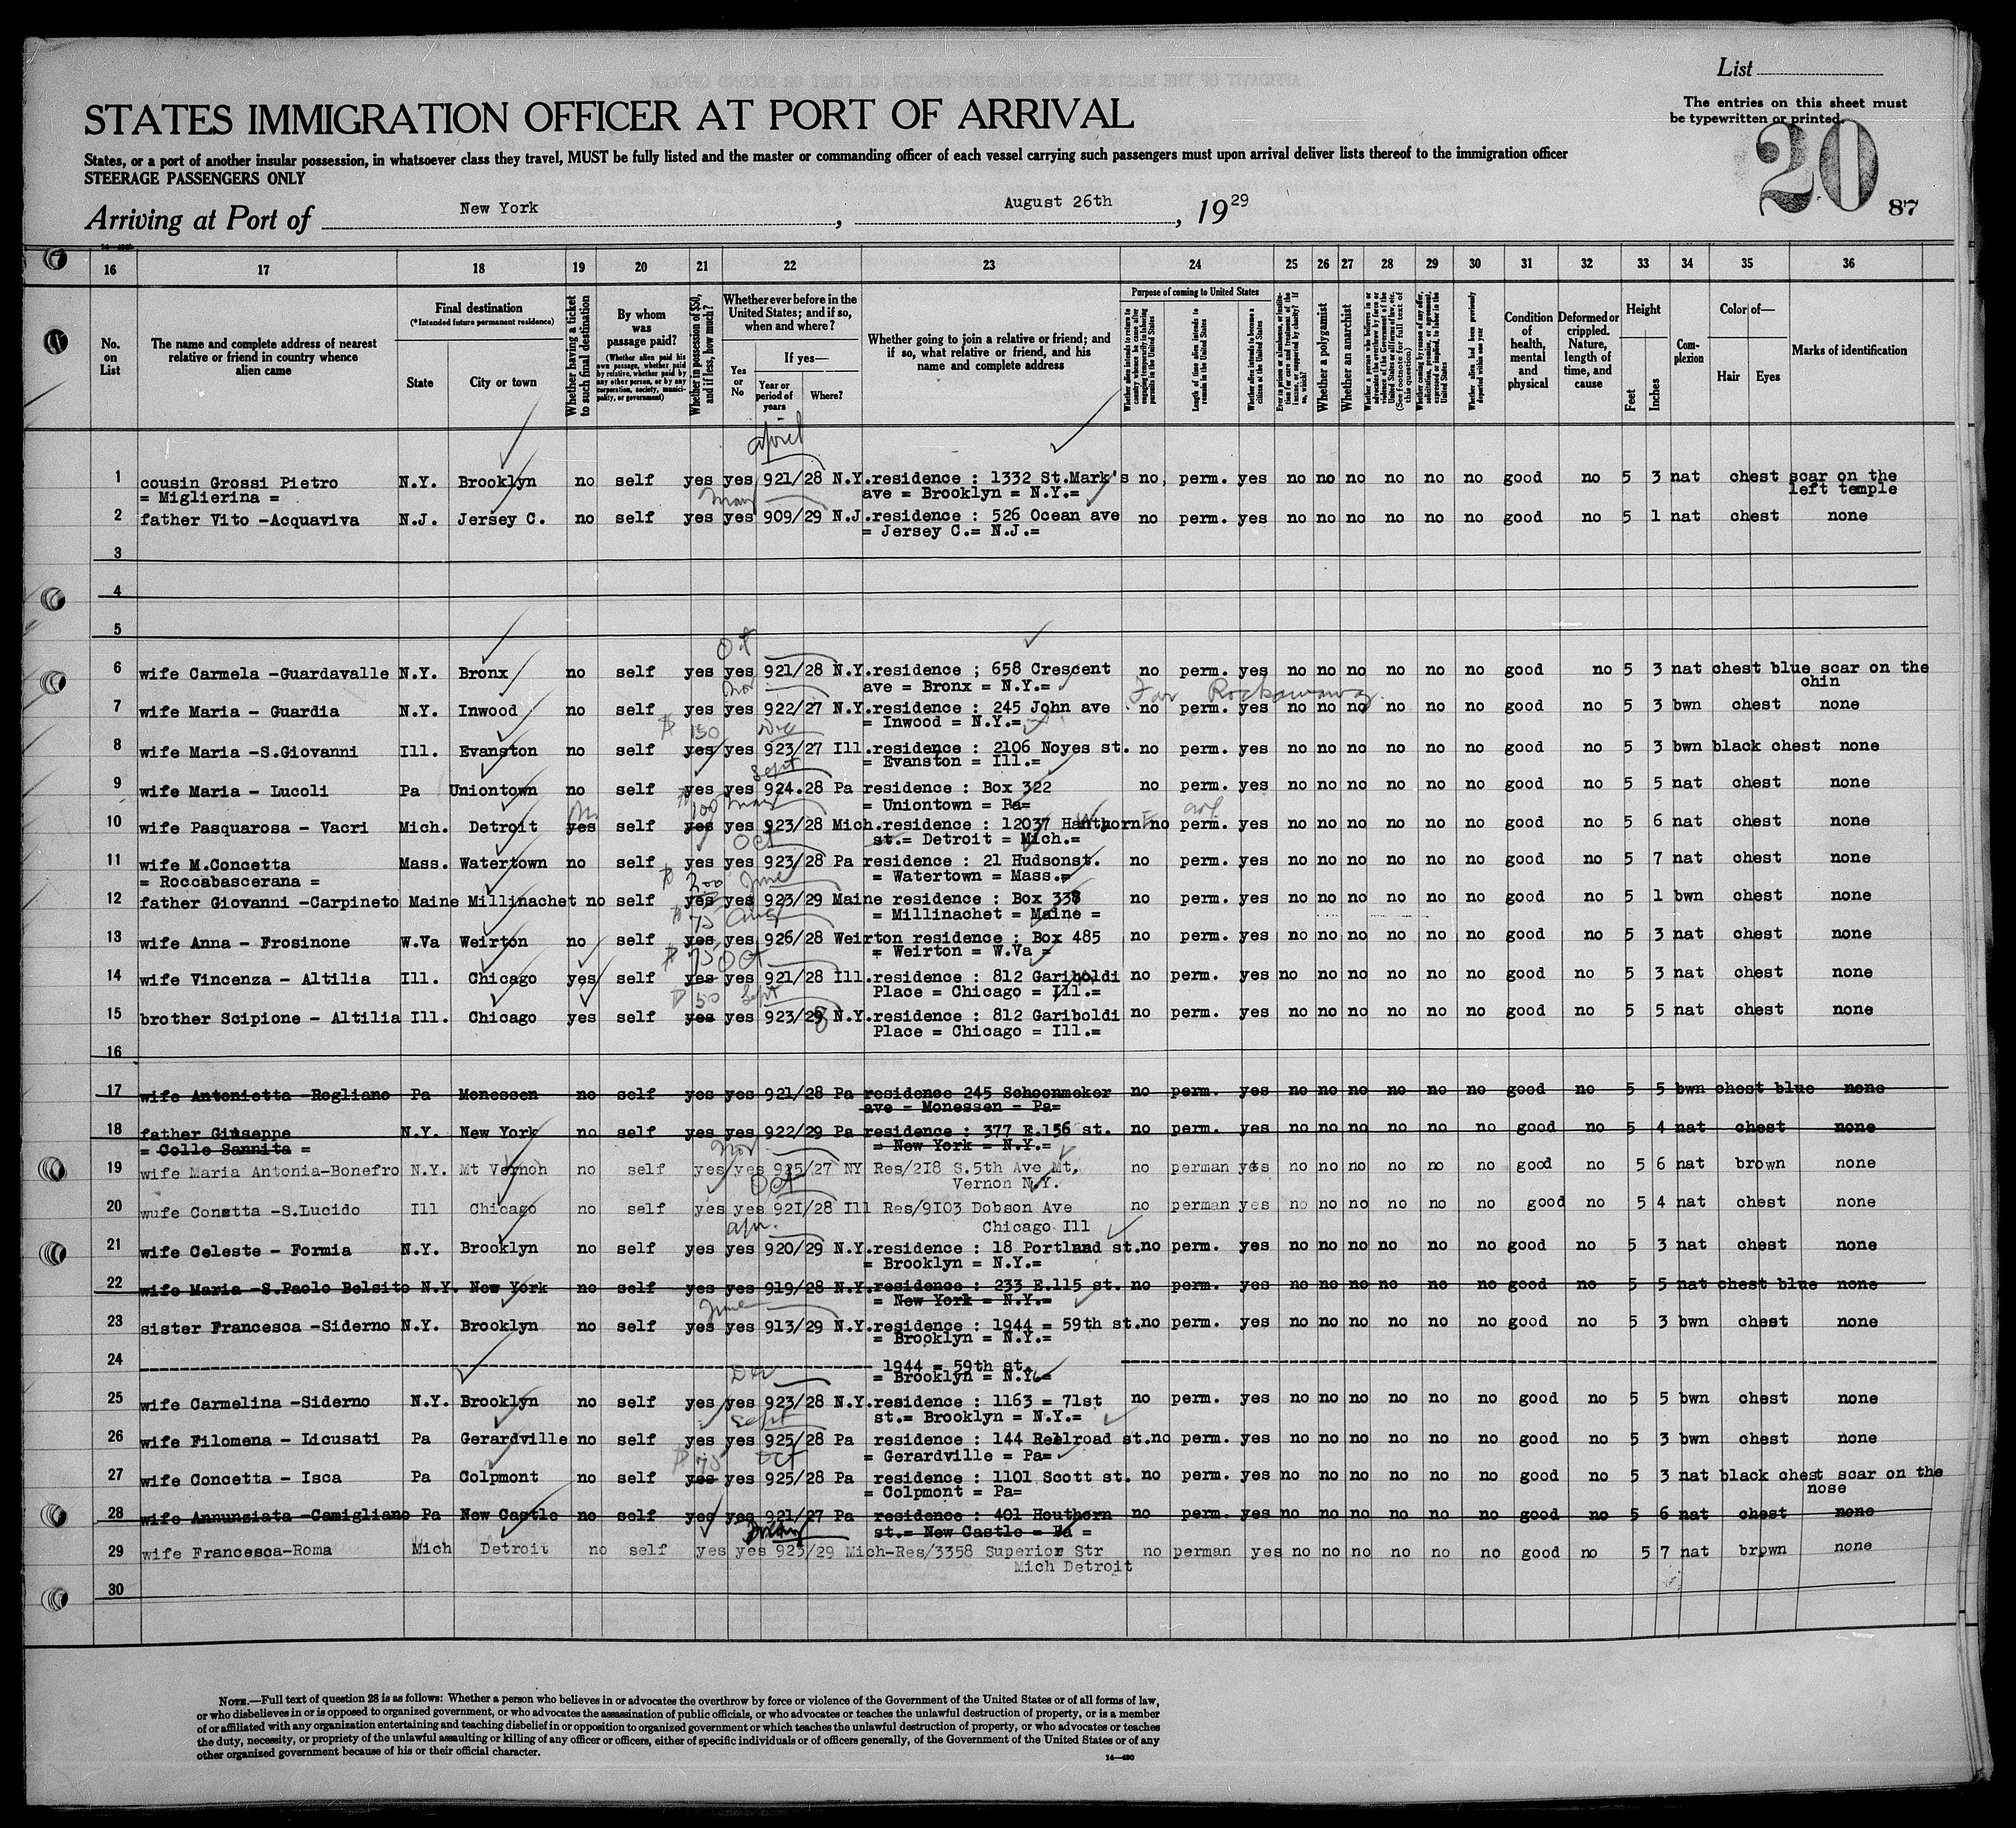 List
The entries on this sheet must
be typewritten or printed.
STATES IMMIGRATION OFFICER AT PORT OF ARRIVAL
20
87
States, or a port of another insular possession, in whatsoever class they travel, MUST be fully listed and the master or commanding officer of each vessel carrying such passengers must upon arrival deliver lists thereof to the immigration officer
STEERAGE PASSENGERS ONLY
Arriving at Port of New York, August 26th, 1929
16 17 18 19 20 21 22 23 24 25 26 27 28 29 30 31 32 33 34 35 36
No. on List
The name and complete address of nearest relative or friend in country whence alien came
Final destination
(*Intended future permanent residence)
State City or town
Whether having a ticket to such final destination
By whom was passage paid?
(Whether alien paid his own passage, whether paid by relative, whether paid by any other person, or by any corporation, society, municipality, or government)
Whether in possession of $50, and if less, how much?
Whether ever before in the United States; and if so, when and where?
Yes or No
If yes—
Year or period of years
Where?
Whether going to join a relative or friend; and if so, what relative or friend, and his name and complete address
Purpose of coming to United States
Whether alien intends to return to country whence he came after engaging temporarily in laboring pursuits in the United States
Length of time alien intends to remain in the United States
Whether alien intends to become a citizen of the United States
Ever in prison or almshouse, or institution for care and treatment of the insane, or supported by charity? If so, which?
Whether a polygamist
Whether an anarchist
Whether a person who believes in or advocates the overthrow by force or violence of the Government of the United States or all forms of law, etc. (See footnote for full text of this question)
Whether coming by reason of any offer, solicitation, promise, or agreement, expressed or implied, to labor in the United States
Whether alien had been previously deported within one year
Condition of health, mental and physical
Deformed or crippled. Nature, length of time, and cause
Height
Feet Inches
Complexion
Color of—
Hair Eyes
Marks of identification
april
1 cousin Grossi Pietro N.Y. Brooklyn no self yes yes 921/28 N.Y. residence : 1332 St.Mark's no perm. yes no no no no no no good no 5 3 nat chest scar on the
= Miglierina = ave = Brooklyn = N.Y.= left temple
May
2 father Vito -Acquaviva N.J. Jersey C. no self yes yes 909/29 N.J. residence : 526 Ocean ave no perm. yes no no no no no no good no 5 1 nat chest none
= Jersey C.= N.J.=
3
4
5
Oct
6 wife Carmela -Guardavalle N.Y. Bronx no self yes yes 921/28 N.Y. residence ; 658 Crescent no perm. yes no no no no no no good no 5 3 nat chest blue scar on the
ave = Bronx = N.Y.= chin
Nov Far Rockaway
7 wife Maria - Guardia N.Y. Inwood no self yes yes 922/27 N.Y. residence : 245 John ave no perm. yes no no no no no no good no 5 3 bwn chest none
= Inwood = N.Y.=
$ 150 Dec
8 wife Maria -S.Giovanni Ill. Evanston no self yes yes 923/27 Ill. residence : 2106 Noyes st. no perm. yes no no no no no no good no 5 3 bwn black chest none
= Evanston = Ill.=
Sept
9 wife Maria - Lucoli Pa Uniontown no self yes yes 924.28 Pa residence : Box 322 no perm. yes no no no no no no good no 5 5 nat chest none
= Uniontown = Pa=
no $ 100 May
10 wife Pasquarosa - Vacri Mich. Detroit yes self yes yes 923/28 Mich. residence : 12037 Hawthorn no perm. yes no no no no no no good no 5 6 nat chest none
st.= Detroit = Mich.=
Oct
11 wife M.Concetta Mass. Watertown no self yes yes 923/28 Pa residence : 21 Hudsonst. no perm. yes no no no no no no good no 5 7 nat chest none
= Roccabascerana = = Watertown = Mass.=
$ 200 June
12 father Giovanni -Carpineto Maine Millinachet no self yes yes 923/29 Maine residence : Box 338 no perm. yes no no no no no no good no 5 1 bwn chest none
= Millinachet = Maine =
$ 75 Aug
13 wife Anna - Frosinone W.Va Weirton no self yes yes 926/28 Weirton residence : Box 485 no perm. yes no no no no no no good no 5 3 nat chest none
= Weirton = W.Va =
$ 75 Oct
14 wife Vincenza - Altilia Ill. Chicago yes self yes yes 921/28 Ill. residence : 812 Gariboldi no perm. yes no no no no no no good no 5 3 nat chest none
Place = Chicago = Ill.=
$ 50 Sept
15 brother Scipione - Altilia Ill. Chicago yes self yes yes 923/28 N.Y. residence : 812 Gariboldi no perm. yes no no no no no no good no 5 5 nat chest none
Place = Chicago = Ill.=
16
17 wife Antonietta -Rogliano Pa Monessen no self yes yes 921/28 Pa residence 245 Schoonmeker no perm. yes no no no no no no good no 5 5 bwn chest blue none
ave - Monessen - Pa=
18 father Giuseppe N.Y. New York no self yes yes 922/29 Pa residence : 377 E.156 st. no perm. yes no no no no no no good no 5 4 nat chest none
= Colle Sannita = = New York = N.Y.=
Nov
19 wife Maria Antonia-Bonefro N.Y. Mt Vernon no self yes yes 925/27 NY Res/218 S.5th Ave Mt. no perman yes no no no no no no good no 5 6 nat brown none
Vernon N.Y.
Oct
20 wufe Conatta -S.Lucido Ill Chicago no self yes yes 921/28 Ill Res/9103 Dobson Ave no perman yes no no no no no no good no 5 4 nat chest none
Chicago Ill
apr.
21 wife Celeste - Formia N.Y. Brooklyn no self yes yes 920/29 N.Y. residence : 18 Portland st. no perm. yes no no no no no no good no 5 3 nat chest none
= Brooklyn = N.Y.=
22 wife Maria -S.Paolo Belsito N.Y. New York no self yes yes 919/28 N.Y. residence : 233 E.115 st. no perm. yes no no no no no no good no 5 5 nat chest blue none
= New York = N.Y.=
June
23 sister Francesca -Siderno N.Y. Brooklyn no self yes yes 913/29 N.Y. residence : 1944 = 59th st. no perm. yes no no no no no no good no 5 3 bwn chest none
= Brooklyn = N.Y.=
24 1944 = 59th st.
= Brooklyn = N.Y.=
Dec
25 wife Carmelina -Siderno N.Y. Brooklyn no self yes yes 923/28 N.Y. residence : 1163 = 71st no perm. yes no no no no no no good no 5 5 bwn chest none
st.= Brooklyn = N.Y.=
Sept
26 wife Filomena - Licusati Pa Gerardville no self yes yes 925/28 Pa residence : 144 Reelroad st. no perm. yes no no no no no no good no 5 3 bwn chest none
= Gerardville = Pa=
$ 75 Oct
27 wife Concetta - Isca Pa Colpmont no self yes yes 925/28 Pa residence : 1101 Scott st. no perm. yes no no no no no no good no 5 3 nat black chest scar on the
= Colpmont = Pa= nose
28 wife Annunziata -Camigliano Pa New Castle no self yes yes 921/27 Pa residence : 401 Houthorn no perm. yes no no no no no no good no 5 6 nat chest none
st.= New Castle = Pa =
29 wife Francesca-Roma Mich Detroit no self yes yes 923/29 Mich-Res/3358 Superior Str no perman yes no no no no no no good no 5 7 nat brown none
Mich Detroit
30
NOTE.—Full text of question 28 is as follows: Whether a person who believes in or advocates the overthrow by force or violence of the Government of the United States or of all forms of law,
or who disbelieves in or is opposed to organized government, or who advocates the assassination of public officials, or who advocates or teaches the unlawful destruction of property, or is a member
of or affiliated with any organization entertaining and teaching disbelief in or opposition to organized government or which teaches the unlawful destruction of property, or who advocates or teaches
the duty, necessity, or propriety of the unlawful assaulting or killing of any officer or officers, either of specific individuals or of officers generally, of the Government of the United States or of any
other organized government because of his or their official character.
14—430